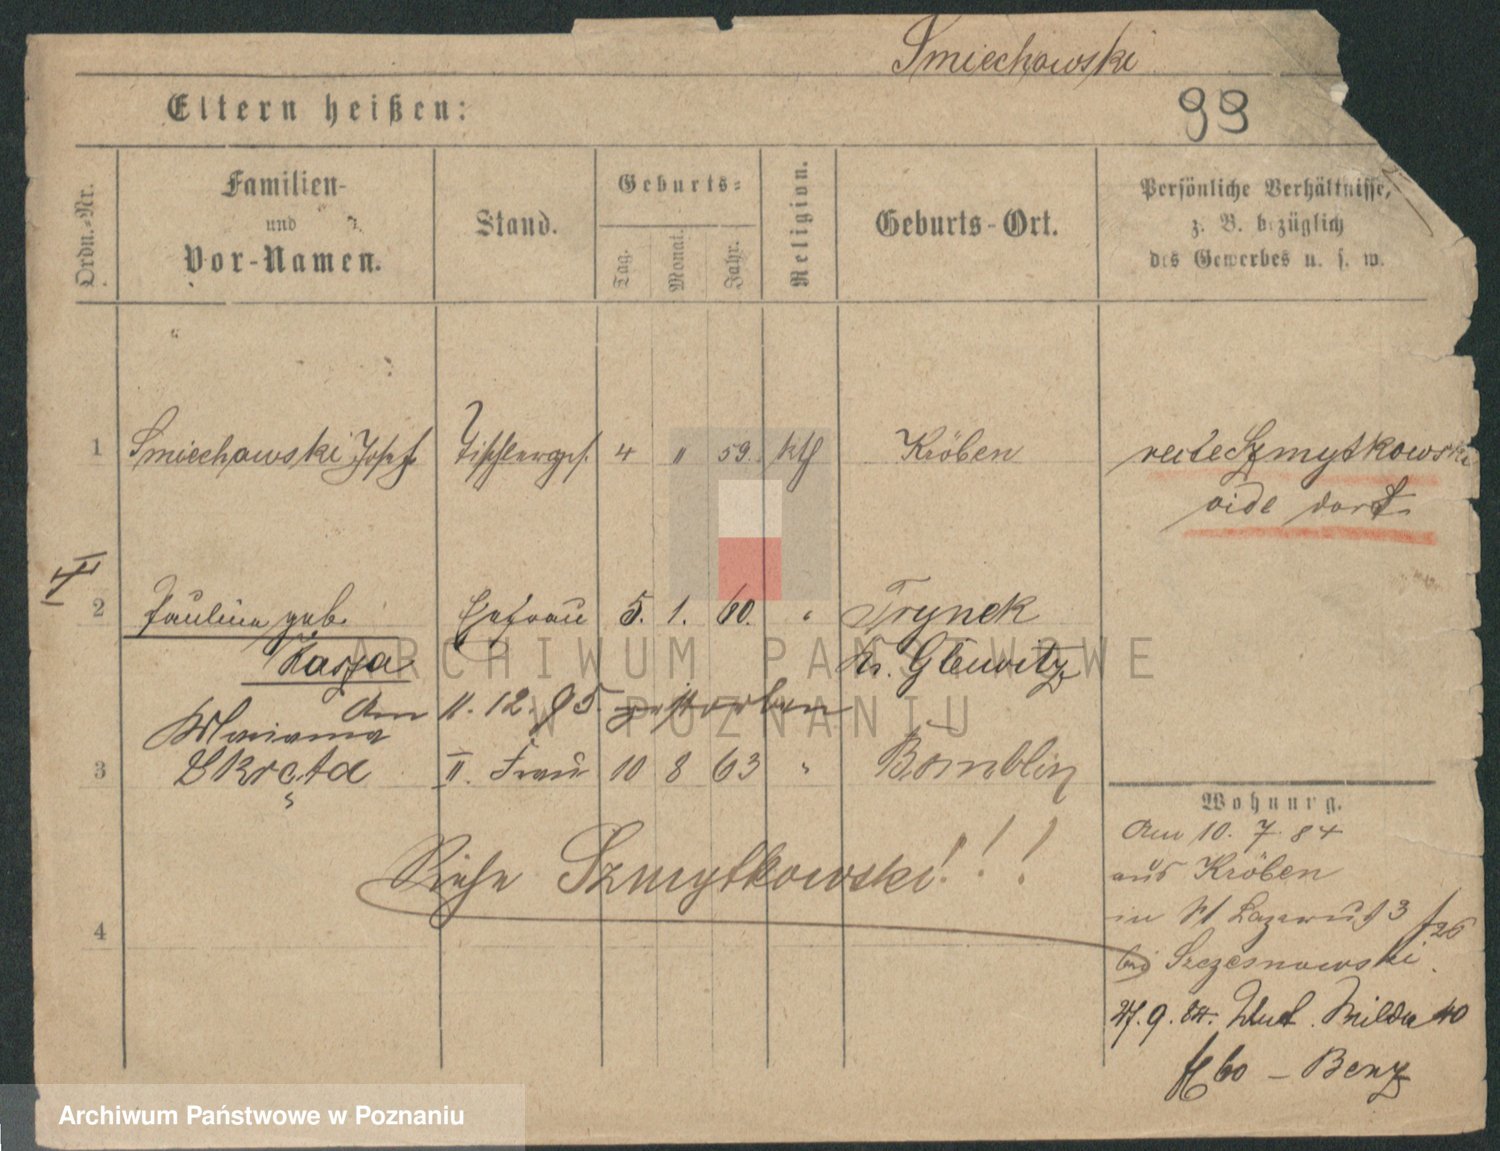 Smiechowski
Eltern heißen:
99
Ordn.-Nr.
Familien-
und
Vor-Namen.
Stand.
Geburts-
Tag.
Monat.
Jahr.
Religion.
Geburts-Ort.
Persönliche Verhältnisse,
z. B. bezüglich
des Gewerbes u. s. w.
1 Smiechowski Josef Tischlerges. 4 " 59. kth Kröben
recte Szmytkowski
vide dort.
2 Paulina geb. Ehefrau 5. 1. 60. " Trynek
Kasza Kr. Gleiwitz
am 11. 12. 95. gestorben
Marianna
3 Skręta II. Frau 10 8 63 " Bomblin
Siehe Szmytkowski!!!
4
Wohnung.
Am 10. 7. 84
aus Kröben
in St Lazarus 3
bei Szczesnowski
27. 9. 84. Wilda 40
60 - Benz
ARCHIWUM PAŃSTWOWE
W POZNANIU
Archiwum Państwowe w Poznaniu